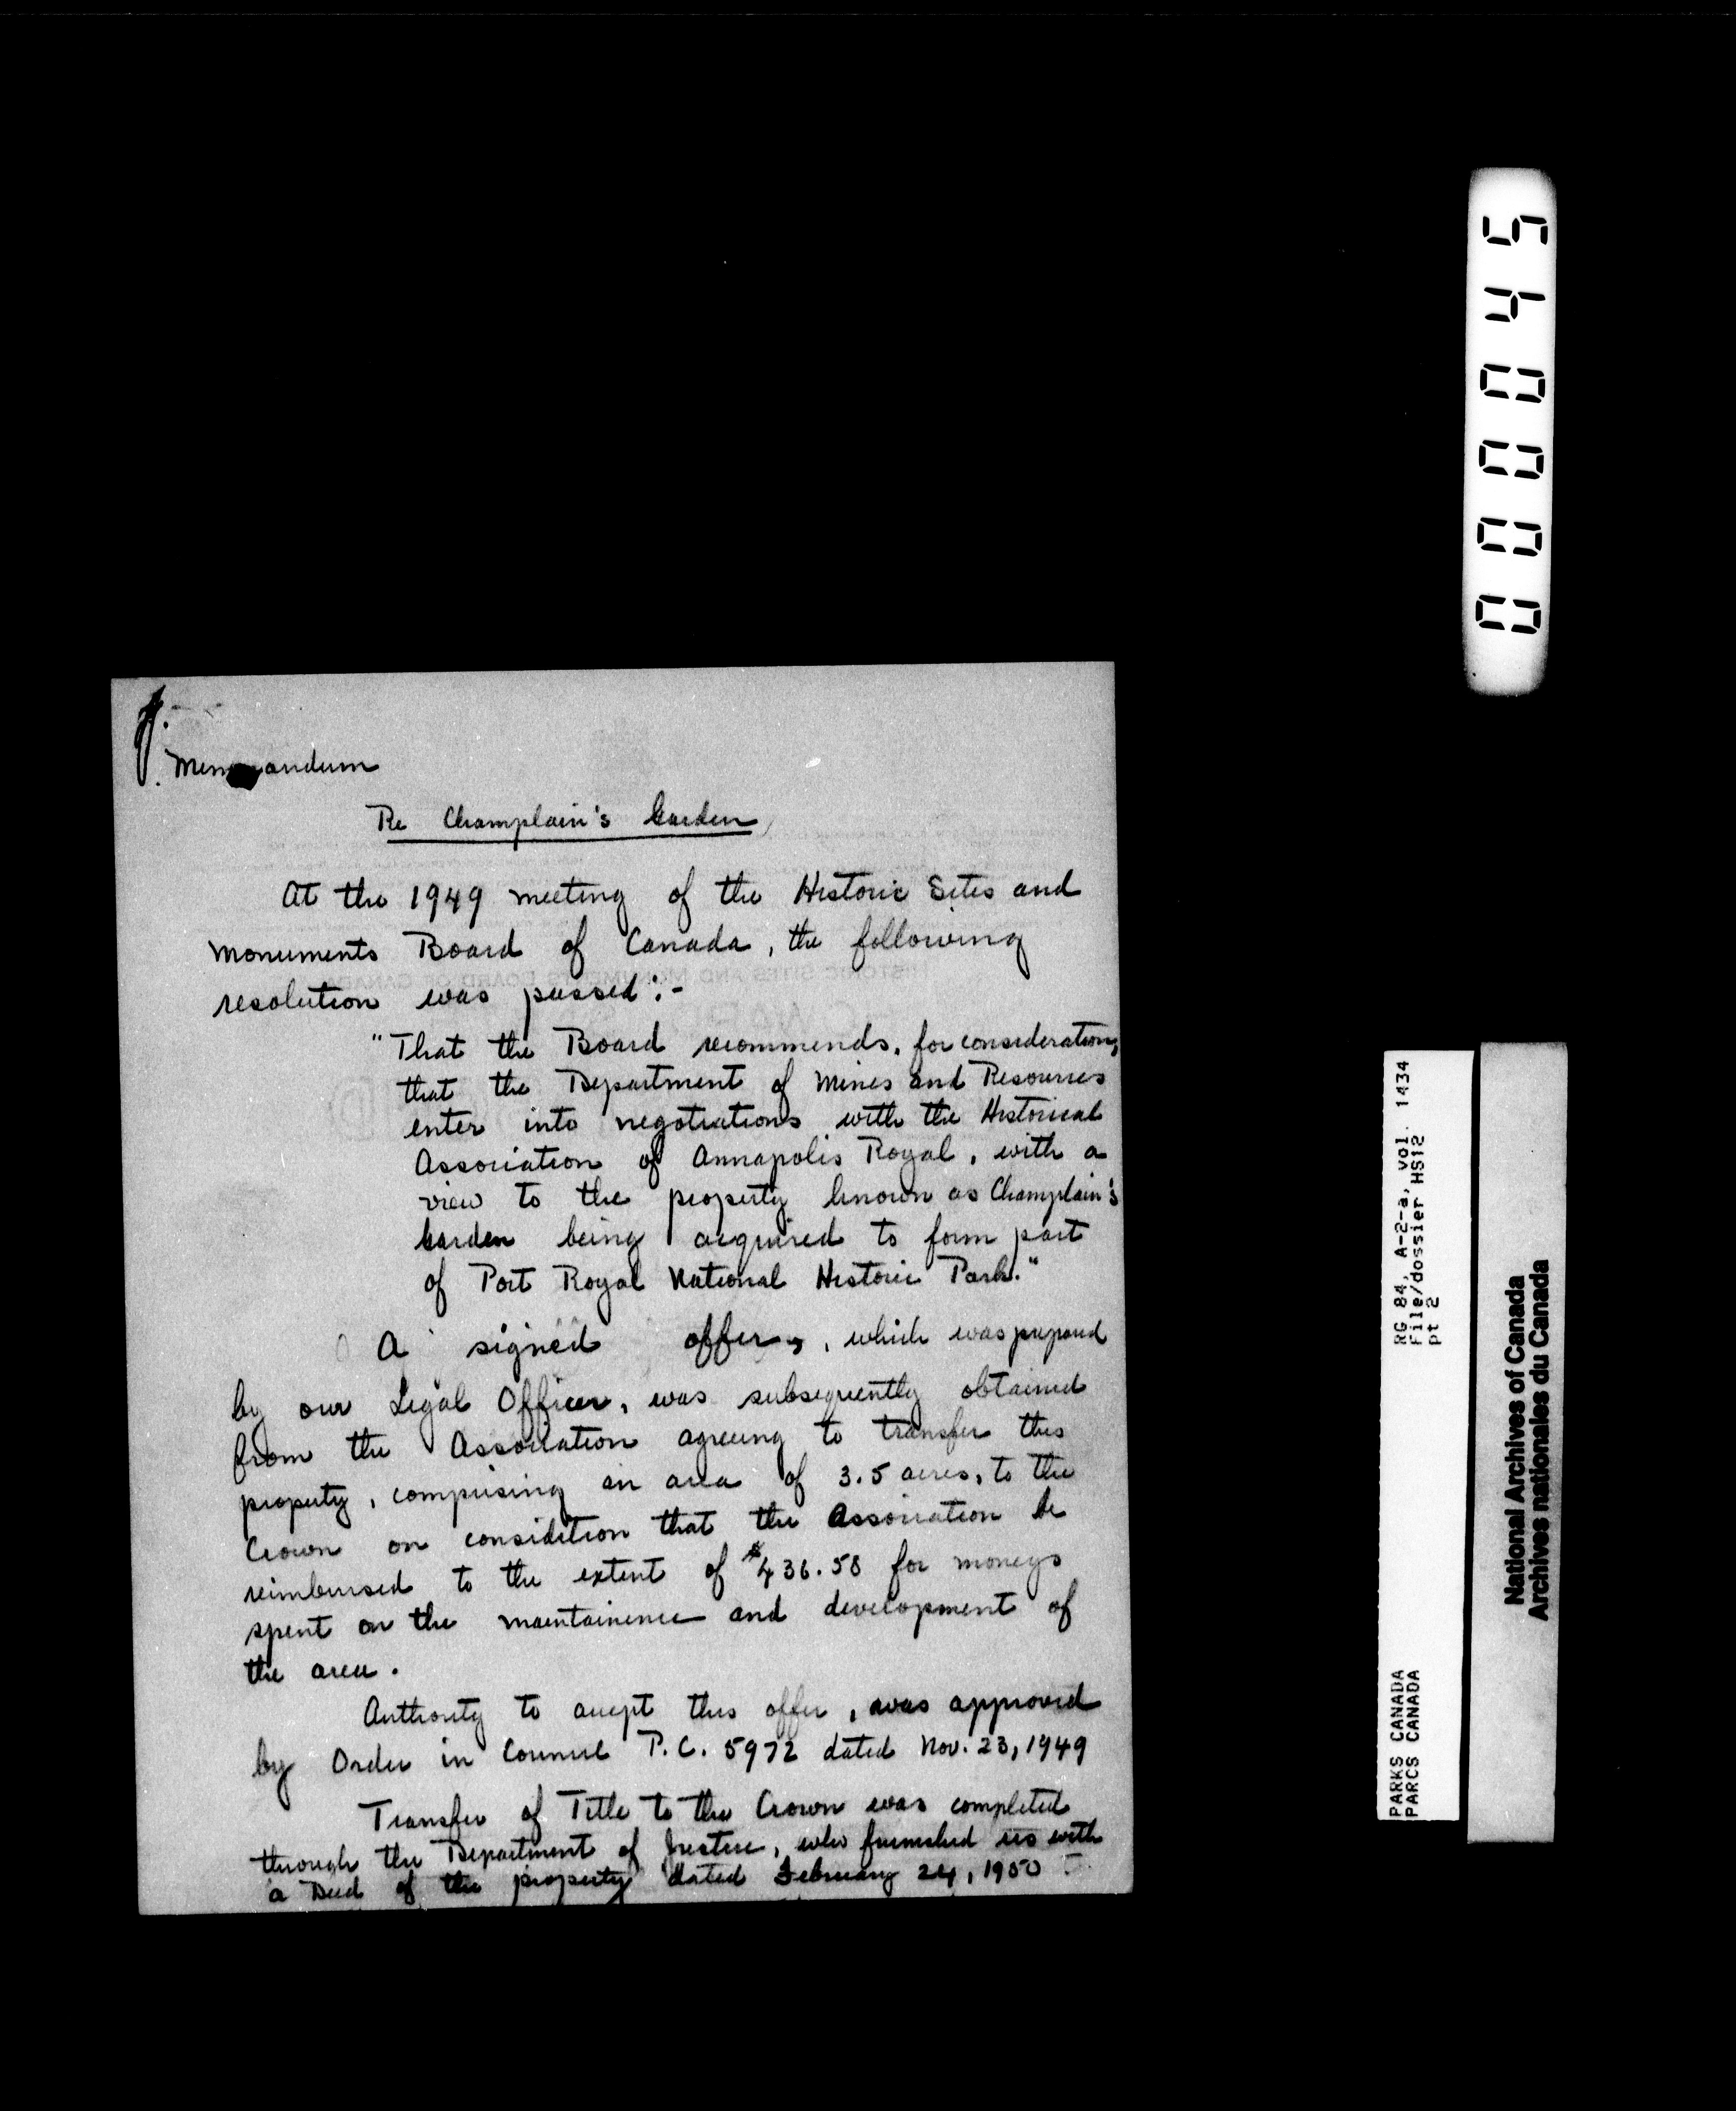 Memorandum
Re Champlain's Garden
At the 1949 meeting of the Historic Sites and
Monuments Board of Canada, the following
resolution was passed:-
"That the Board recommends, for consideration,
that the Department of Mines and Resources
enter into negotiations with the Historical
Association of Annapolis Royal, with a
view to the property known as Champlain's
Garden being acquired to form part
of Port Royal National Historic Park."
A signed offer, which was prepared
by our Legal Officer, was subsequently obtained
from the Association agreeing to transfer this
property, comprising an area of 3.5 acres, to the
Crown on considition that the Association be
reimbursed to the extent of $436.58 for moneys
spent on the maintainence and development of
the area.
Authority to accept this offer, was approved
by Order in Council P.C. 5972 dated Nov. 23, 1949
Transfer of Title to the Crown was completed
through the Department of Justice, who furnished us with
a Deed of the property dated February 24, 1950
000045
PARKS CANADA RG 84, A-2-a, vol. 1434
PARCS CANADA File/dossier HS12
pt 2
National Archives of Canada
Archives nationales du Canada